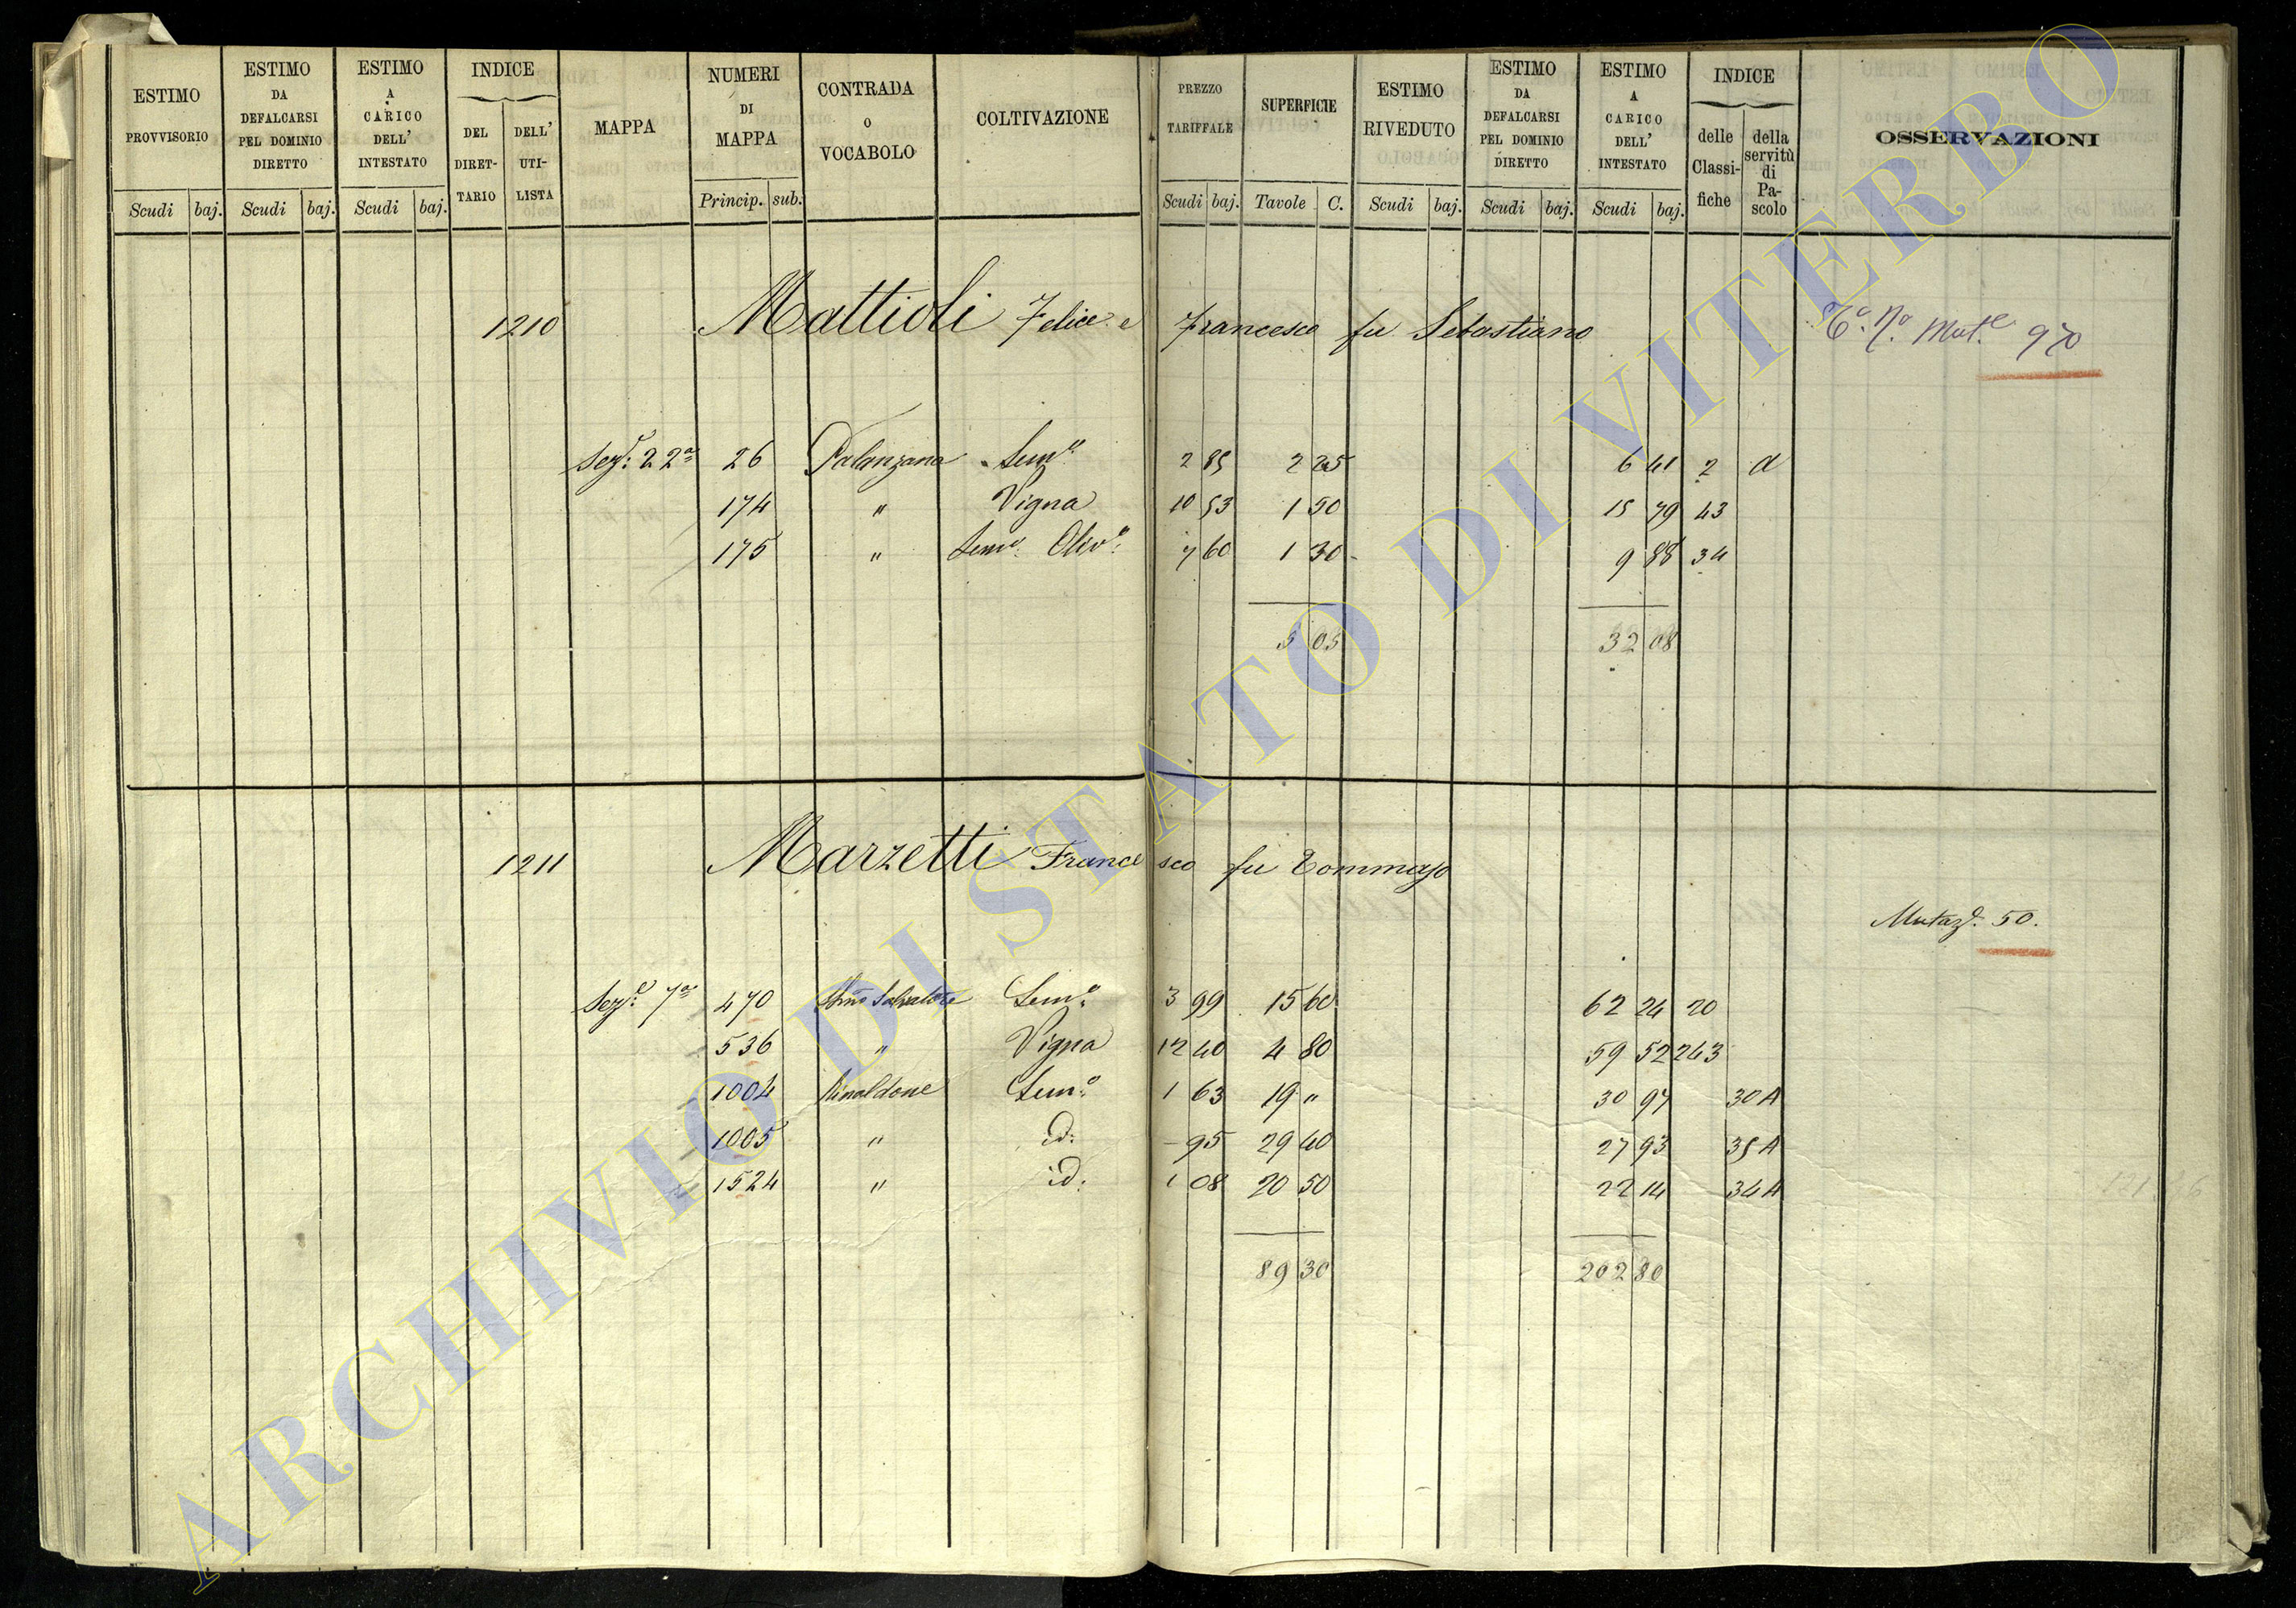 ESTIMO PROVVISORIO Scudi baj.
ESTIMO DA DEFALCARSI PEL DOMINIO DIRETTO Scudi baj.
ESTIMO A CARICO DELL' INTESTATO Scudi baj.
INDICE DEL DIRET-TARIO DELL' UTI-LISTA
MAPPA
NUMERI DI MAPPA Princip. sub.
CONTRADA O VOCABOLO
COLTIVAZIONE
PREZZO TARIFFALE Scudi baj.
SUPERFICIE Tavole C.
ESTIMO RIVEDUTO Scudi baj.
ESTIMO DA DEFALCARSI PEL DOMINIO DIRETTO Scudi baj.
ESTIMO A CARICO DELL' INTESTATO Scudi baj.
INDICE delle Classi-fiche della servitù di Pa-scolo
OSSERVAZIONI
1210 Mattioli Felice e Francesco fu Sebastiano
Mut.e 970
Sez.e 22a 26 Palanzana Sem.o 2 85 2 25 6 41 2 a
174 " Vigna 10 53 1 50 15 79 43
175 " Sem.o Oliv.o 7 60 1 30 9 88 34
5 05 32 08
1211 Marzetti Francesco fu Tommaso
Mutaz.e 50.
Sez.e 7a 470 Salvatore Sem.o 3 99 15 60 62 24 20
536 " Vigna 12 40 4 80 59 52 243
1004 Rinaldone Sem.o 1 63 19 " 30 97 30 A
1005 " id. - 95 29 40 27 93 35 A
1524 " id. 1 08 20 50 22 14 34 A
89 30 202 80
ARCHIVIO DI STATO DI VITERBO